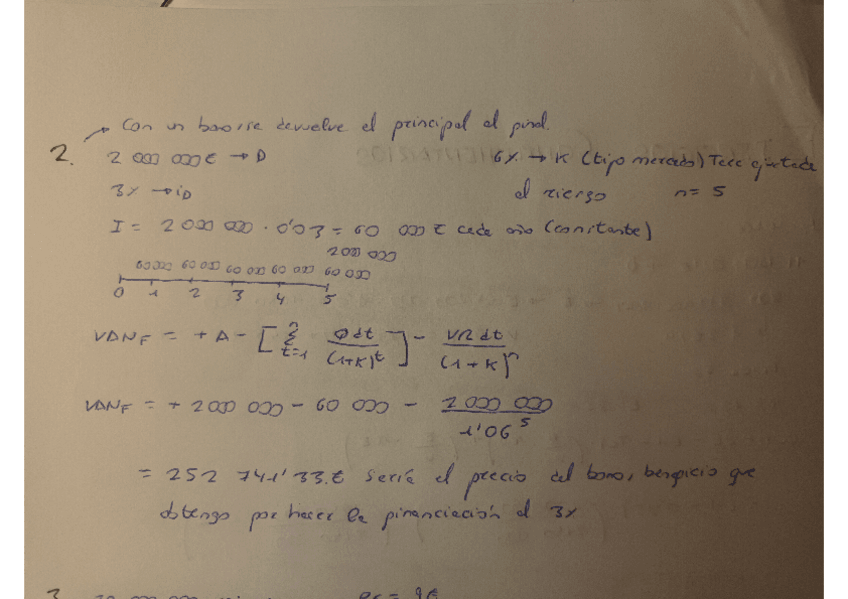 Con un bono, se devuelve el principal al final.
2. 2 000 000 € → D 6% → K (tipo mercado) Tasa ajustada
3% → iD al riesgo n = 5
I = 2 000 000 · 0'03 = 60 000 € cada año (constante)
2 000 000
60 000 60 000 60 000 60 000 60 000
0 1 2 3 4 5
VAN_F = + A - [ Σ t=1 n Qdt / (1+K)^t ] - VRdt / (1+K)^n
VAN_F = + 2 000 000 - 60 000 - 2 000 000 / 1'06^5
= 252 741'33 € sería el precio del bono, beneficio que
obtengo por hacer la financiación al 3%
3.